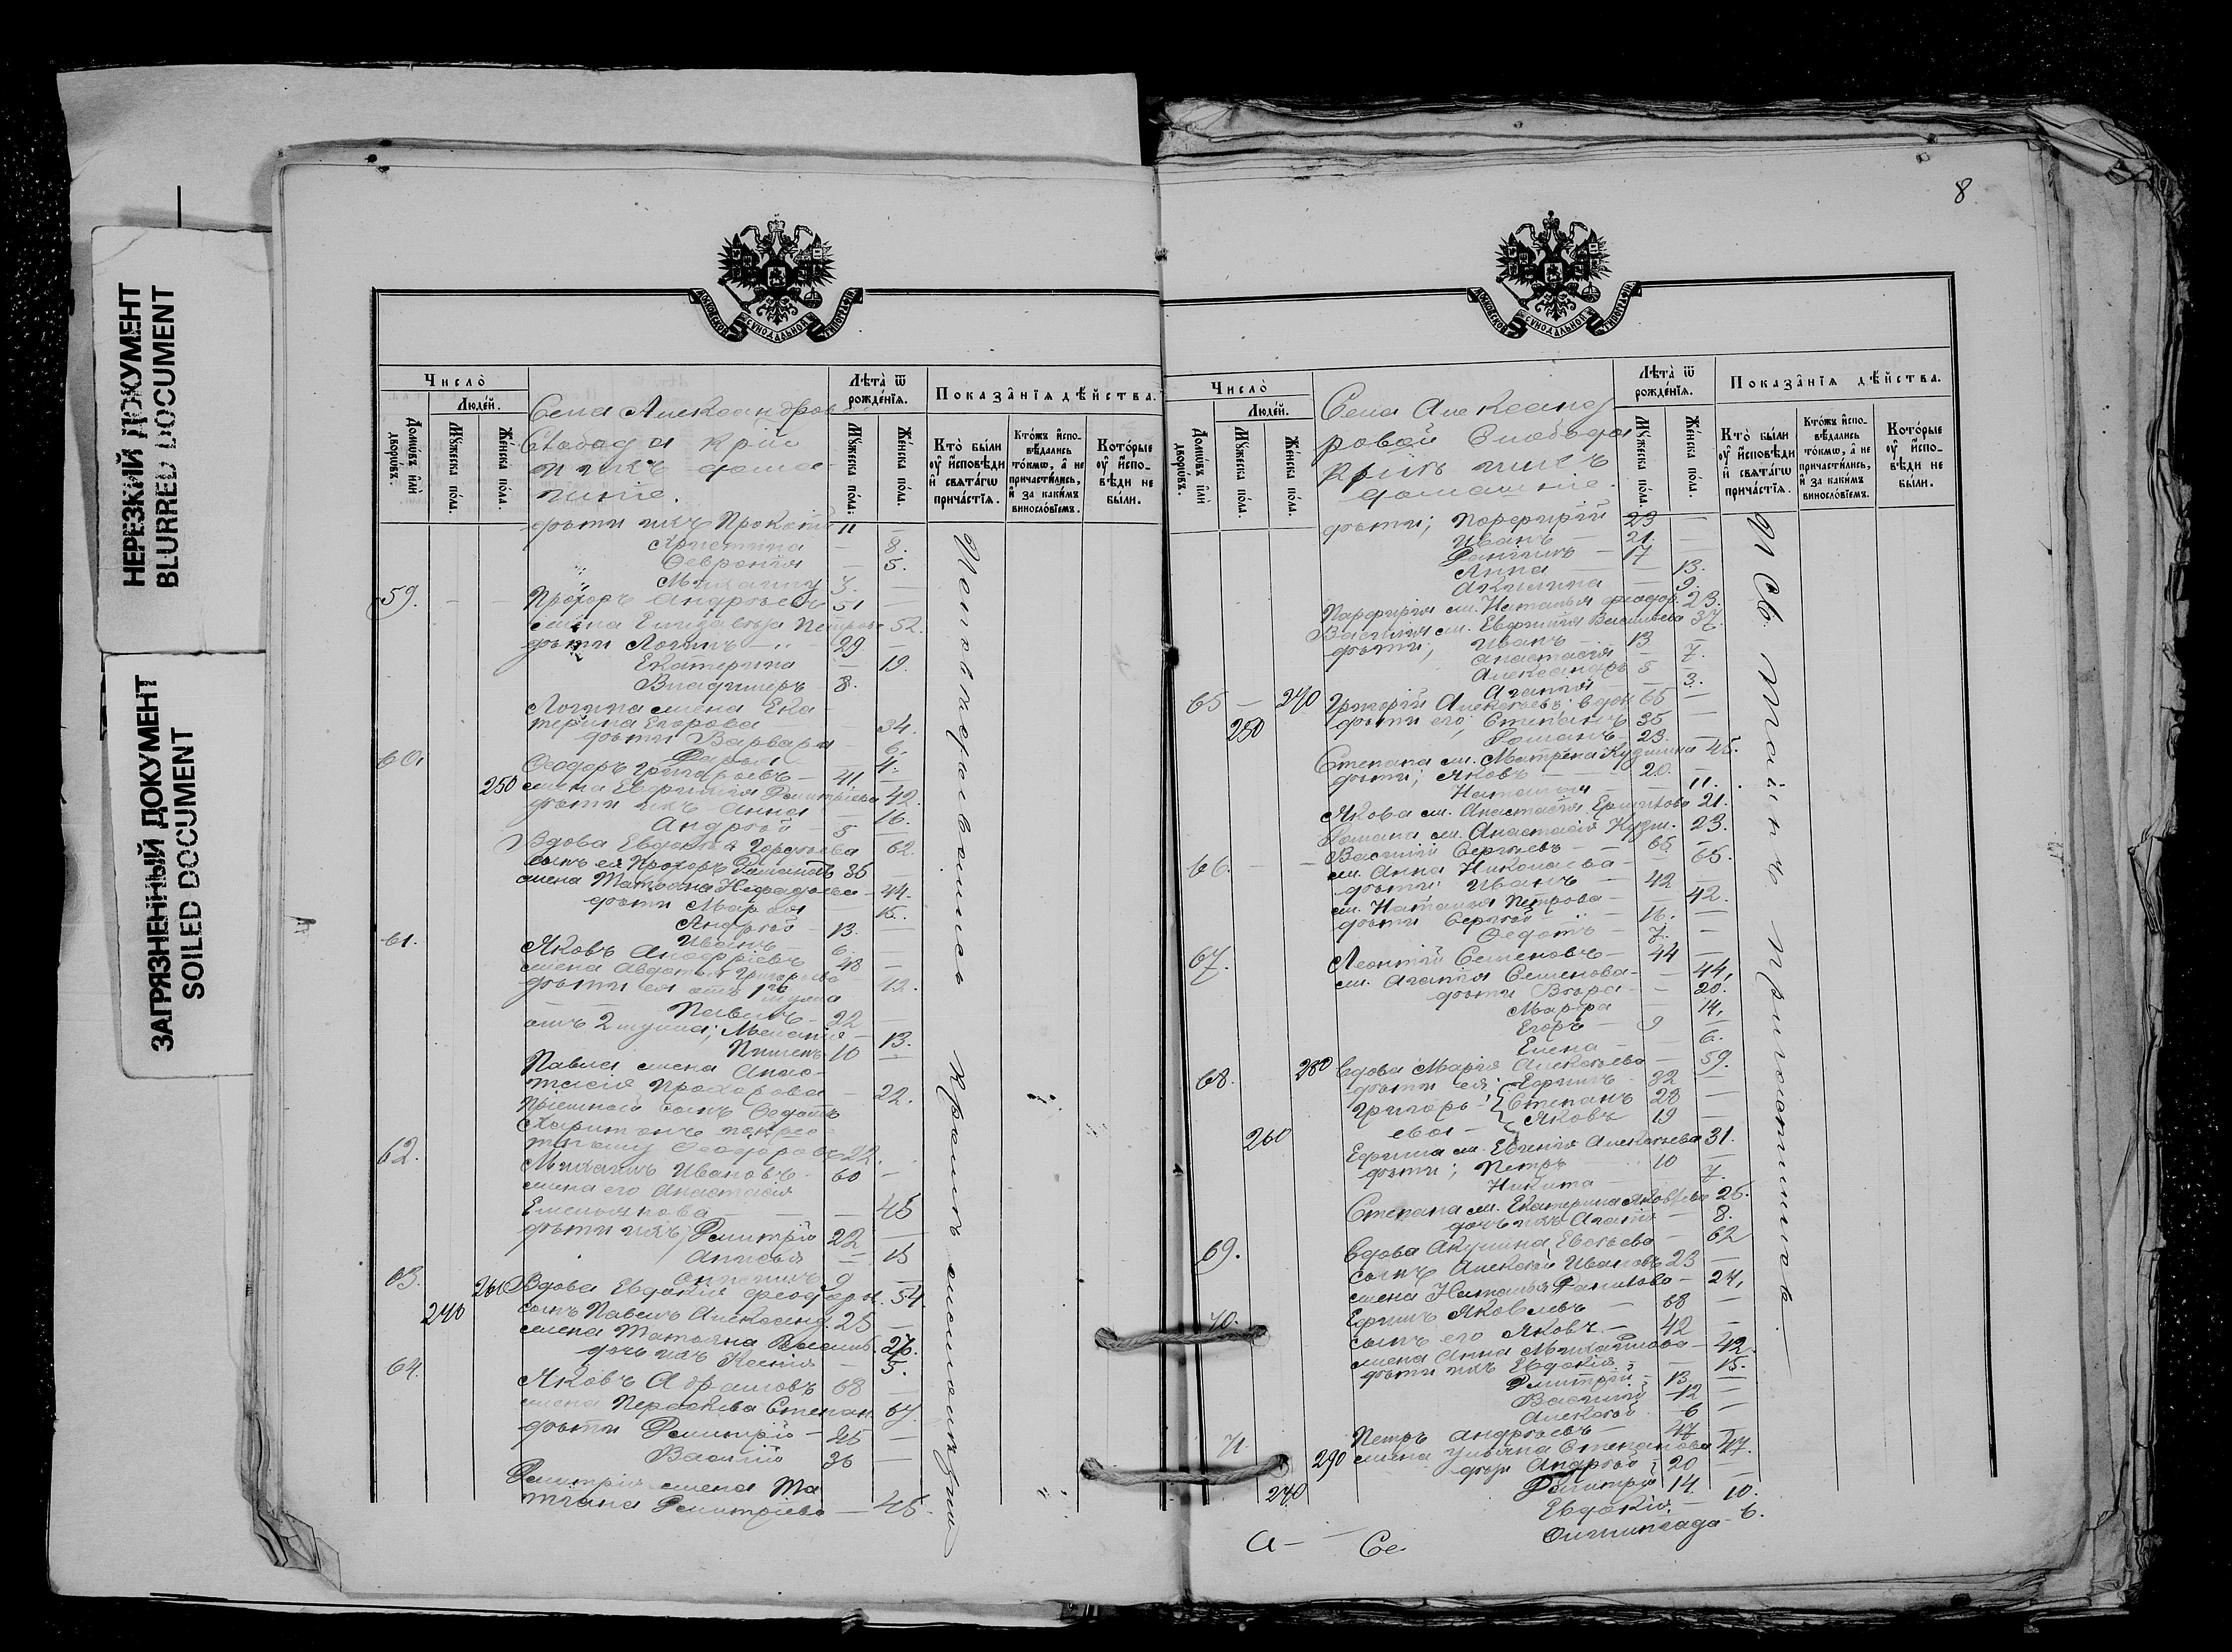 НЕРЕЗКИЙ ДОКУМЕНТ
BLURRED DOCUMENT
ЗАГРЯЗНЕННЫЙ ДОКУМЕНТ
SOILED DOCUMENT
МОСКОВСКОЙ СѴНОДАЛЬНОЙ ТИПОГРАФІИ
Число̀
Люде́й.
Домѡ́въ и҆лѝ дворѡ́въ.
Мꙋ́жеска по́ла.
Же́нска по́ла.
Села Александров
Слобода
ихъ домаш
ніе.
Лѣта̀ ѿ рожде́нїѧ.
Мꙋ́жеска по́ла.
Же́нска по́ла.
Показа̑нїѧ дѣ́йства.
Кто̀ бы́ли ᲂу҆ и҆сповѣди и҆ свѧта́гѡ прича́стїѧ.
Кто́жъ и҆спо­вѣдались то́кмѡ, а҆ не причасти́лись, и҆ за каки́мъ винословїемъ.
Кото́рые ᲂу҆ и҆спо­вѣди не бы́ли.
дѣти ихъ 11 —
Христина — 8.
Ѳевронія — 5.
3. —
59. Прохоръ Андреевъ 51 —
жена Елизавета Петрова 52.
дѣти Логинъ 29 —
Екатерина — 19.
Владимеръ 8.
Логина жена Ека
терина Егорова — 34.
дѣти Варвара — 6.
Дарья — 4.
60. Ѳеодоръ Григорьевъ 41
250 жена Евфимія Димитріева 42.
дѣти ихъ Анна — 16.
Андрей 5 —
Вдова Евдокія 62.
сынъ ея Прохоръ 35 —
жена Татьяна 44.
дѣти Марія 15.
Андрей 13. —
Иванъ 6. —
61. Яковъ 48 —
жена Авдотья Григорьева
дѣти ея отъ 1го мужа 42.
Павелъ 22 —
отъ 2 мужа; Меланія 13.
Пименъ 10 —
Павла жена Анас
тасія Прохорова — 22.
Пріемной сынъ Ѳедотъ
Ѳеодоровъ 22.
62. Михаилъ Ивановъ 60 —
жена его Анастасія
Емельянова — 45
дѣти ихъ Димитрій 22 —
Анисья — 15
9 —
63. 260 Вдова Евдокія Ѳеодоров. 54
240 сынъ Павелъ Александ. 25 —
жена Татьяна Васильев. 27.
дочь ихъ Ксенія — 5.
64. Яковъ Абрамовъ 68 —
жена Пераскева Степан. 67.
дѣти Димитрій 45 —
Василій 36 —
Димитрія жена Та
тіана Димитріева — 45.
Исповѣдовались
8
МОСКОВСКОЙ СѴНОДАЛЬНОЙ ТИПОГРАФІИ
Число̀
Люде́й.
Домѡ́въ и҆лѝ дворѡ́въ.
Мꙋ́жеска по́ла.
Же́нска по́ла.
Села Александ
ровой Слободы
ихъ
домашніе.
Лѣта̀ ѿ рожде́нїѧ.
Мꙋ́жеска по́ла.
Же́нска по́ла.
Показа̑нїѧ дѣ́йства.
Кто̀ бы́ли ᲂу҆ и҆сповѣди и҆ свѧта́гѡ прича́стїѧ.
Кто́жъ и҆спо­вѣдались то́кмѡ, а҆ не причасти́лись, и҆ за каки́мъ винословїемъ.
Кото́рые ᲂу҆ и҆спо­вѣди не бы́ли.
дѣти; Парфирій 23 —
Иванъ 21. —
Даніилъ 17 —
Анна — 13.
Акилина — 9.
Парфирія ж. Наталья Ѳеодор. 23.
Василія ж. Евфимія Васильева 37.
дѣти; Иванъ 13 —
Анастасія — 7.
Александръ 5 —
Агафія — 3.
65 — 270 Григорій Алексѣевъ вдов. 65 —
250 дѣти его; Степанъ 35 —
Романъ 23. —
Степана ж. Матрена Кузмина 45.
дѣти; Яковъ 20. —
Наталья — 11.
Якова ж. Анастасія Ермилова 21.
Романа ж. Анастасія Кузм. 23.
66. Василій Сергѣевъ 65 —
ж. Анна Николаева — 65.
дѣти Иванъ 42 —
ж. Наталья Петрова — 42.
дѣти Сергѣй 16. —
Ѳедотъ 7. —
67. Леонтій Семеновъ 44 —
ж. Агафія Семенова — 44.
дѣти Вѣра — 20.
Марфа 14.
Егоръ 9 —
Елена — 6.
68. 280 Вдова Марія Алексѣева — 59.
дѣти ея: Ефимъ 32 —
Григорь Степанъ 28 —
евы Яковъ 19 —
260 Ефима ж. Евгенія Алексѣева 31.
дѣти; Петръ 10 —
Никита 7.
Степана ж. Екатерина Яковлева 26.
дочь ихъ Агафія — 8.
69. Вдова Акулина Евсѣева — 62
сынъ Алексѣй Ивановъ 23 —
жена Наталья Данилова — 24.
70. Ефимъ Яковлевъ 68 —
сынъ его Яковъ 42 —
жена Анна Михаилова — 42.
дѣти ихъ Евдокія — 15.
Димитрій 13 —
Василій 12 —
Алексѣй 6 —
71. Петръ Андреевъ 47 —
290 жена Ульяна Степанова 47.
дѣти Андрей 20 —
270 Димитрій 14 —
Евдокія 10.
6.
и Св. Таинъ пріобщились.